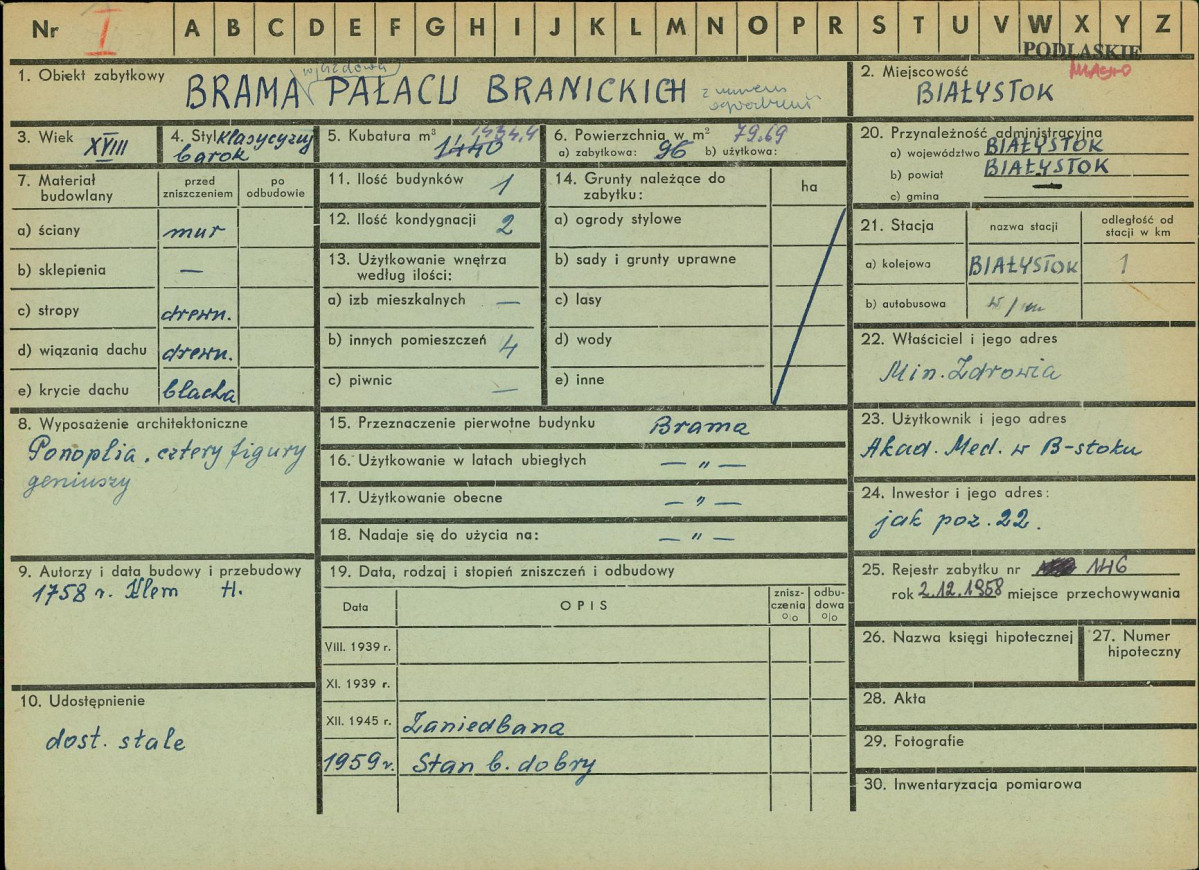 Nr I A B C D E F G H I J K L M N O P R S T U V W X Y Z
PODLASKIE
1. Obiekt zabytkowy
wjazdowa
BRAMA PAŁACU BRANICKICH
z murem
2. Miejscowość
MIASTO
BIAŁYSTOK
3. Wiek XVIII
4. Styl klasycyzuj
barok
5. Kubatura m³ 1434,4
1440
6. Powierzchnia w m² 79.69
a) zabytkowa: 96 b) użytkowa:
20. Przynależność administracyjna
a) województwo BIAŁYSTOK
b) powiat BIAŁYSTOK
c) gmina —
7. Materiał budowlany
przed zniszczeniem
po odbudowie
a) ściany mur
b) sklepienia —
c) stropy drewn.
d) wiązania dachu drewn.
e) krycie dachu blacha
11. Ilość budynków 1
12. Ilość kondygnacji 2
13. Użytkowanie wnętrza
według ilości:
a) izb mieszkalnych —
b) innych pomieszczeń 4
c) piwnic —
14. Grunty należące do
zabytku:
ha
a) ogrody stylowe
b) sady i grunty uprawne
c) lasy
d) wody
e) inne
21. Stacja
nazwa stacji
odległość od
stacji w km
a) kolejowa BIAŁYSTOK 1
b) autobusowa w/m
22. Właściciel i jego adres
Min. Zdrowia
8. Wyposażenie architektoniczne
Ponoplia, cztery figury
geniuszy
15. Przeznaczenie pierwotne budynku Brama
16. Użytkowanie w latach ubiegłych — „ —
17. Użytkowanie obecne — „ —
18. Nadaje się do użycia na: — „ —
23. Użytkownik i jego adres
Akad. Med. w B-stoku
24. Inwestor i jego adres:
jak poz. 22.
9. Autorzy i data budowy i przebudowy
1758 r. Klem H.
19. Data, rodzaj i stopień zniszczeń i odbudowy
Data
OPIS
znisz-
czenia
%
odbu-
dowa
%
VIII. 1939 r.
XI. 1939 r.
XII. 1945 r. Zaniedbana
1959 r. Stan b. dobry
25. Rejestr zabytku nr 146
rok 2.12.1958 miejsce przechowywania
26. Nazwa księgi hipotecznej
27. Numer
hipoteczny
10. Udostępnienie
dost. stale
28. Akta
29. Fotografie
30. Inwentaryzacja pomiarowa